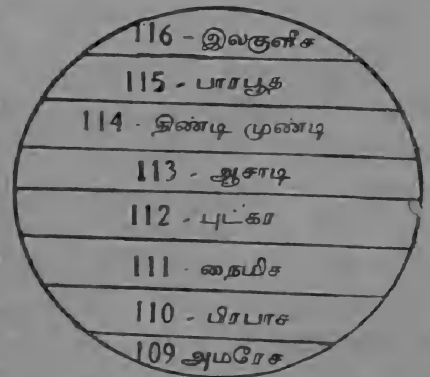 116 - இலகுளீச
115 - பாரபூத
114 - திண்டி முண்டி
113 - ஆசாடி
112 - புட்கர
111 - நைமிச
110 - பிரபாச
109 அமரேச